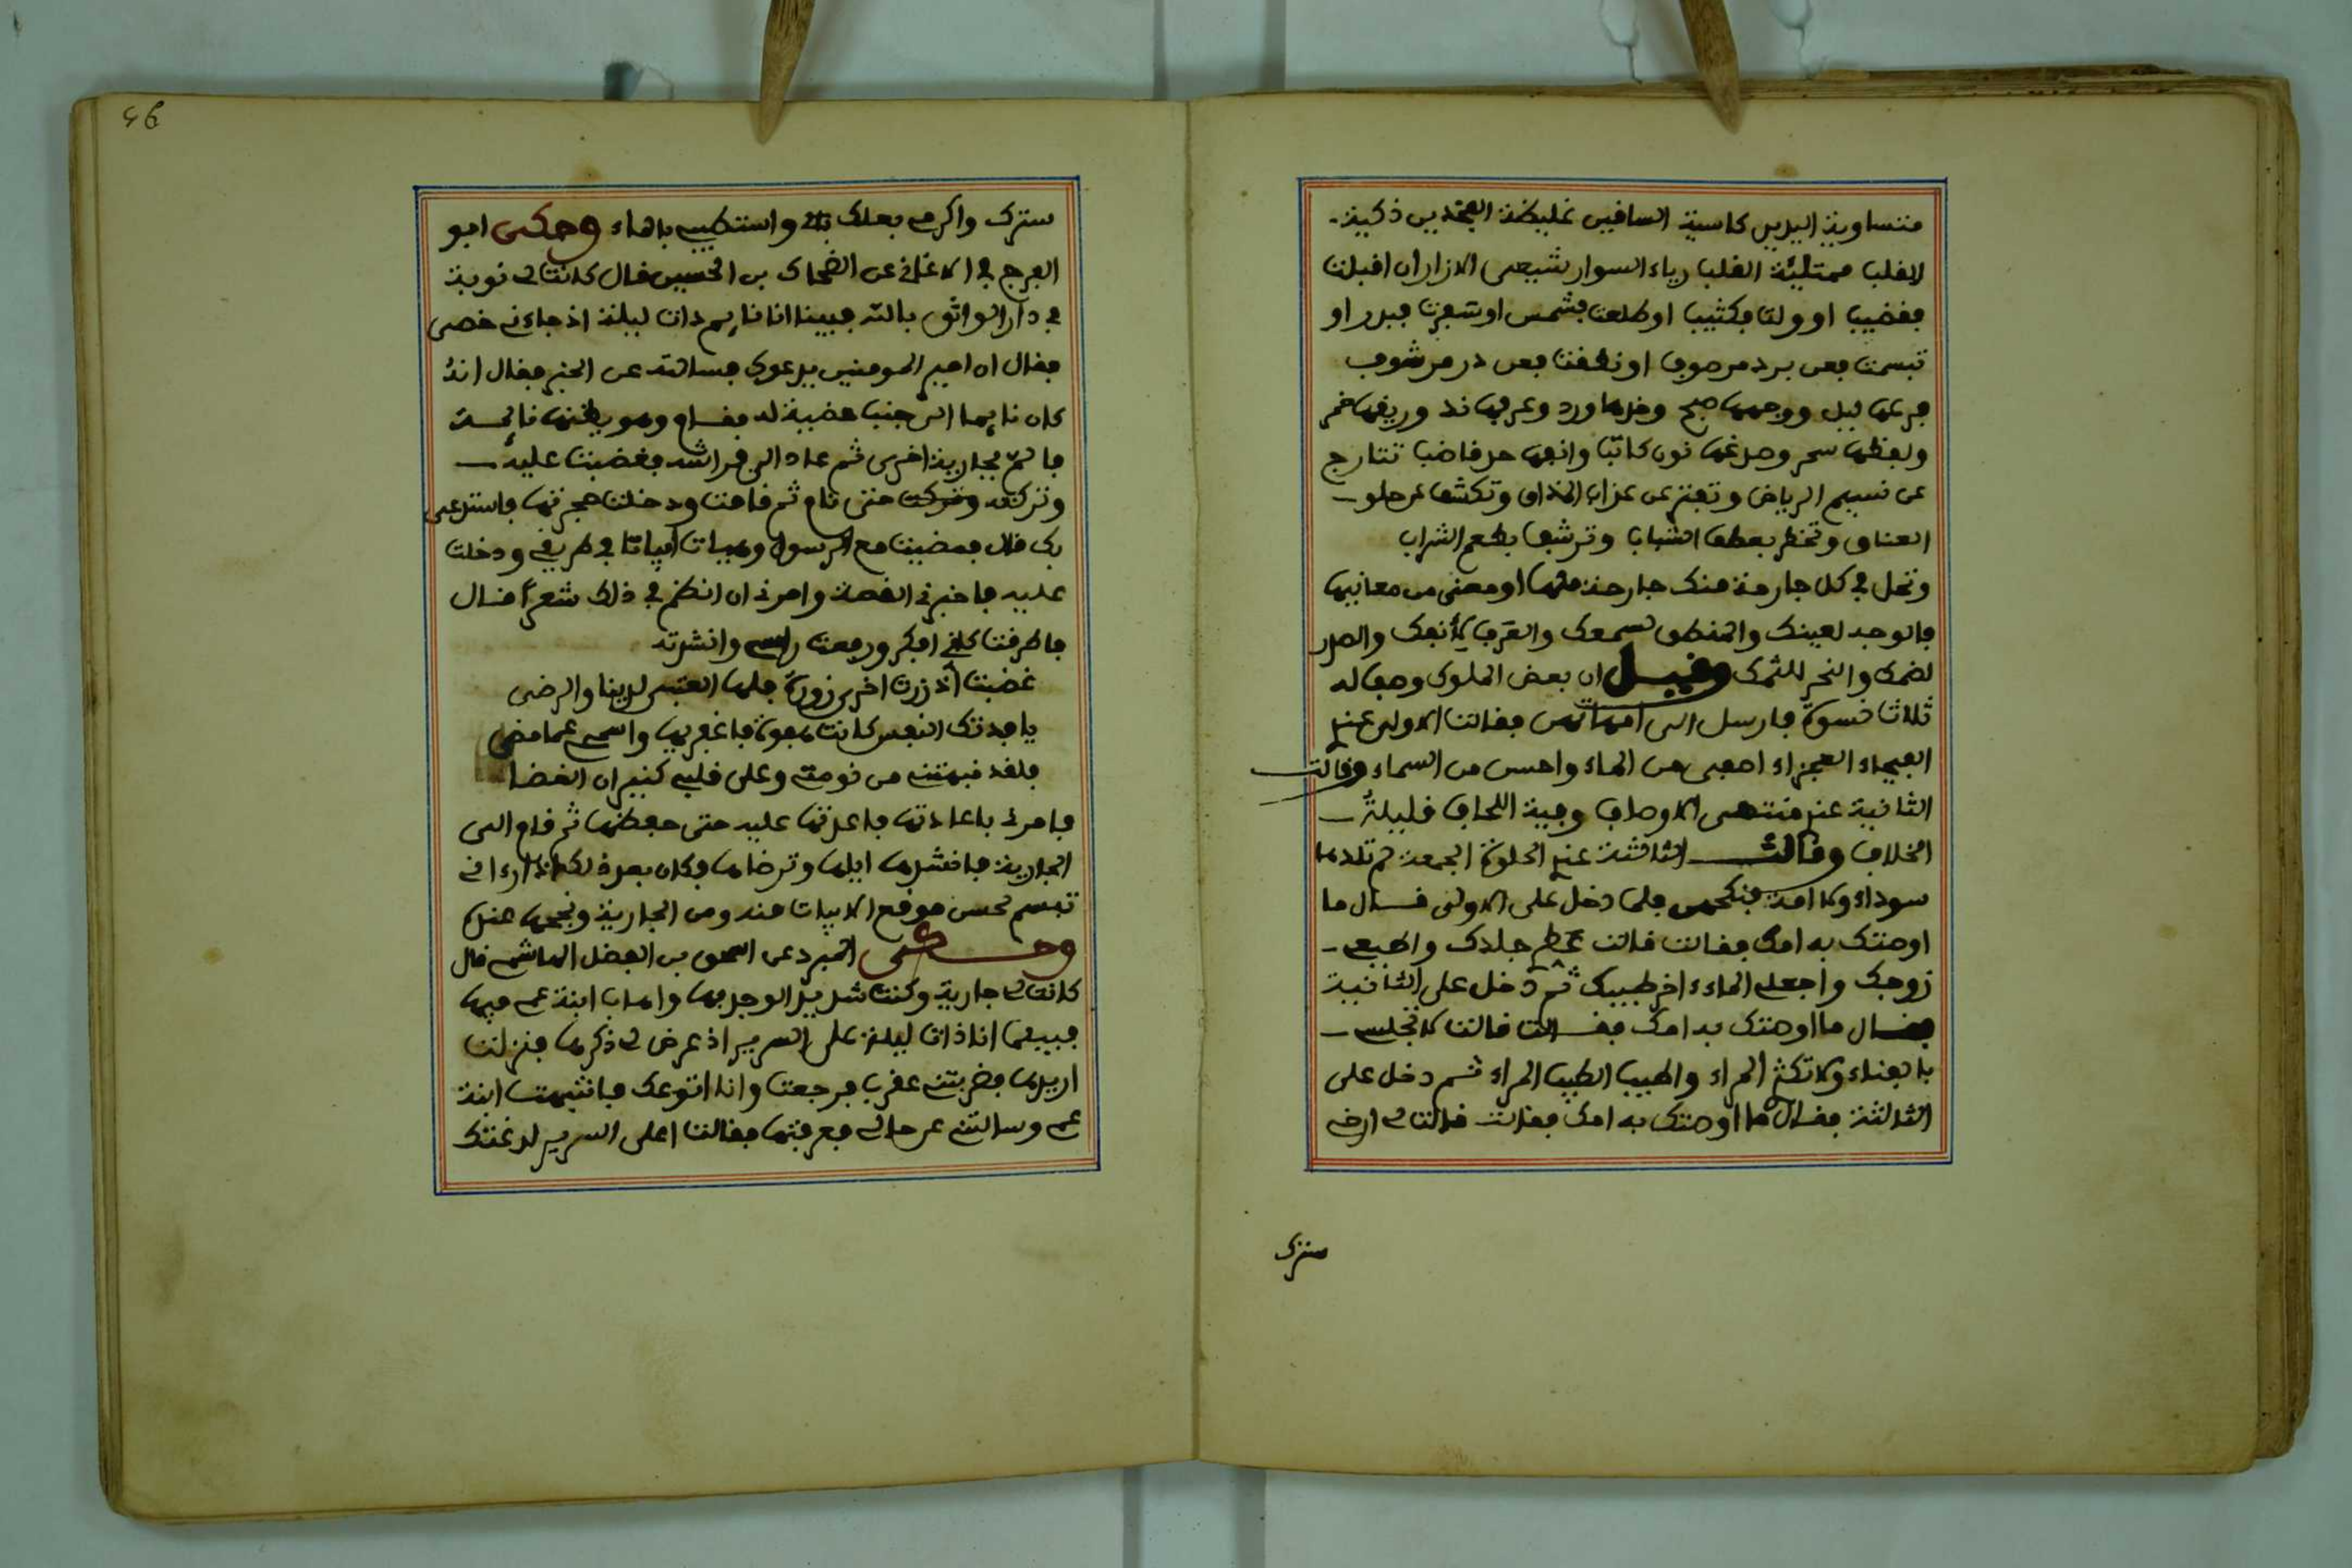 متساوية اليدين كاسية الساقين غليظة الفخذين ذكية
القلب ممتلئة القلب رياء السوار شبيعى الازار ان اقبلت
فقضيب او ولت فكثيب او طلعت فشمس او سفرت فبدر او
تبسمت فعن برد مرصوف او نطقت فعن در مرشوف
فرعها ليل ووجهها صبح وخدها ورد وعرفها ند وريقها خمر
ولفظها سحر وصدغها نون كاتب وانفها حد قاضب تتارج
عن نسيم الرياض وتفتر عن عذاب المذاق وتكشف عن حلو
العناق وتخطر بعطف الشباب وترشف بطعم الشراب
وتحل في كل جارحة منك جارحة منها او معنى من معانيها
فالوجه لعينك والمنطق لسمعك والعرف لأنفك والصدر
لضمك والنحر للثمك وقيل ان بعض الملوك وصف له
ثلاث نسوة فارسل الى امهاتهن فقالت الاولى عندي
الفيحاء العجزاء اصفى من الماء واحسن من السماء وقالت
الثانية عندي منتهى الاوصاف وفية اللحاف قليلة
الخلاف وقالت الثالثة عندي الحلوة الجمعة لم تلدها
سوداء ولا امة فنكحهن فلما دخل على الاولى قال ما
اوصتك به امك فقالت قالت عطر جلدك واطيعي
زوجك واجعلي الماء اخر طيبك ثم دخل على الثانية
فقال ما اوصتك به امك فقالت قالت لا تجلسي
بالفناء ولا تكثر المراء واطيب الطيب الماء ثم دخل على
الثالثة فقال ما اوصتك به امك فقالت قالت لي ارخي
سترك
46
سترك واكرمي بعلك واستطيبي بالماء وحكى ابو
الفرج في الاغاني عن الضحاك بن الحسين قال كانت لي نوبة
في دار الواثق بالله فبينا انا نايم ذات ليلة اذ جاءني خصى
فقال ان امير المومنين يدعوك فسالته عن الخبر فقال انه
كان نايما الى جنب حضية له فقام وهو يظنها نايمة
فالم بجارية اخرى ثم عاد الى فراشه فغضبت عليه
وتركته وتركت حتى نام ثم قامت ودخلت حجرتها فاستدعى
بك قال فمضيت مع الرسول وهيات ابياتا في طريقي ودخلت
عليه فاخبرني القصة وامرني ان انظم في ذلك شعرا قال
فاطرقت كاني افكر ورفعت راسي وانشدته
غضبت اذ زرت اخرى زورة فلها العتبى لدينا والرضى
يا فدتك النفس كانت هفوة فاغفريها واسمحي عما مضى
فلقد نبهتني من نومتي وعلى قلبي كنيران الغضا
فامرني باعادتها فاعدتها عليه حتى حفظها ثم قام الى
الجارية فانشدها اياها وترضاها فكان بعد ذلك اذا راءاني
تبسم لحسن موقع الابيات منه ومن الجارية ونجحها عنده
وحكى المبرد عن اسحق بن الفضل الهاشمي قال
كانت لي جارية وكنت شديد الوجد بها واهاب ابنة عمي فيها
فبينما انا ذات ليلة على السرير اذ عرض لي ذكرها فنزلت
اريدها فضربتني عقرب فرجعت وانا اتوعك فانتبهت ابنة
عمي وسالتني عن حالي فعرفتها فقالت اعلى السرير لدغتك